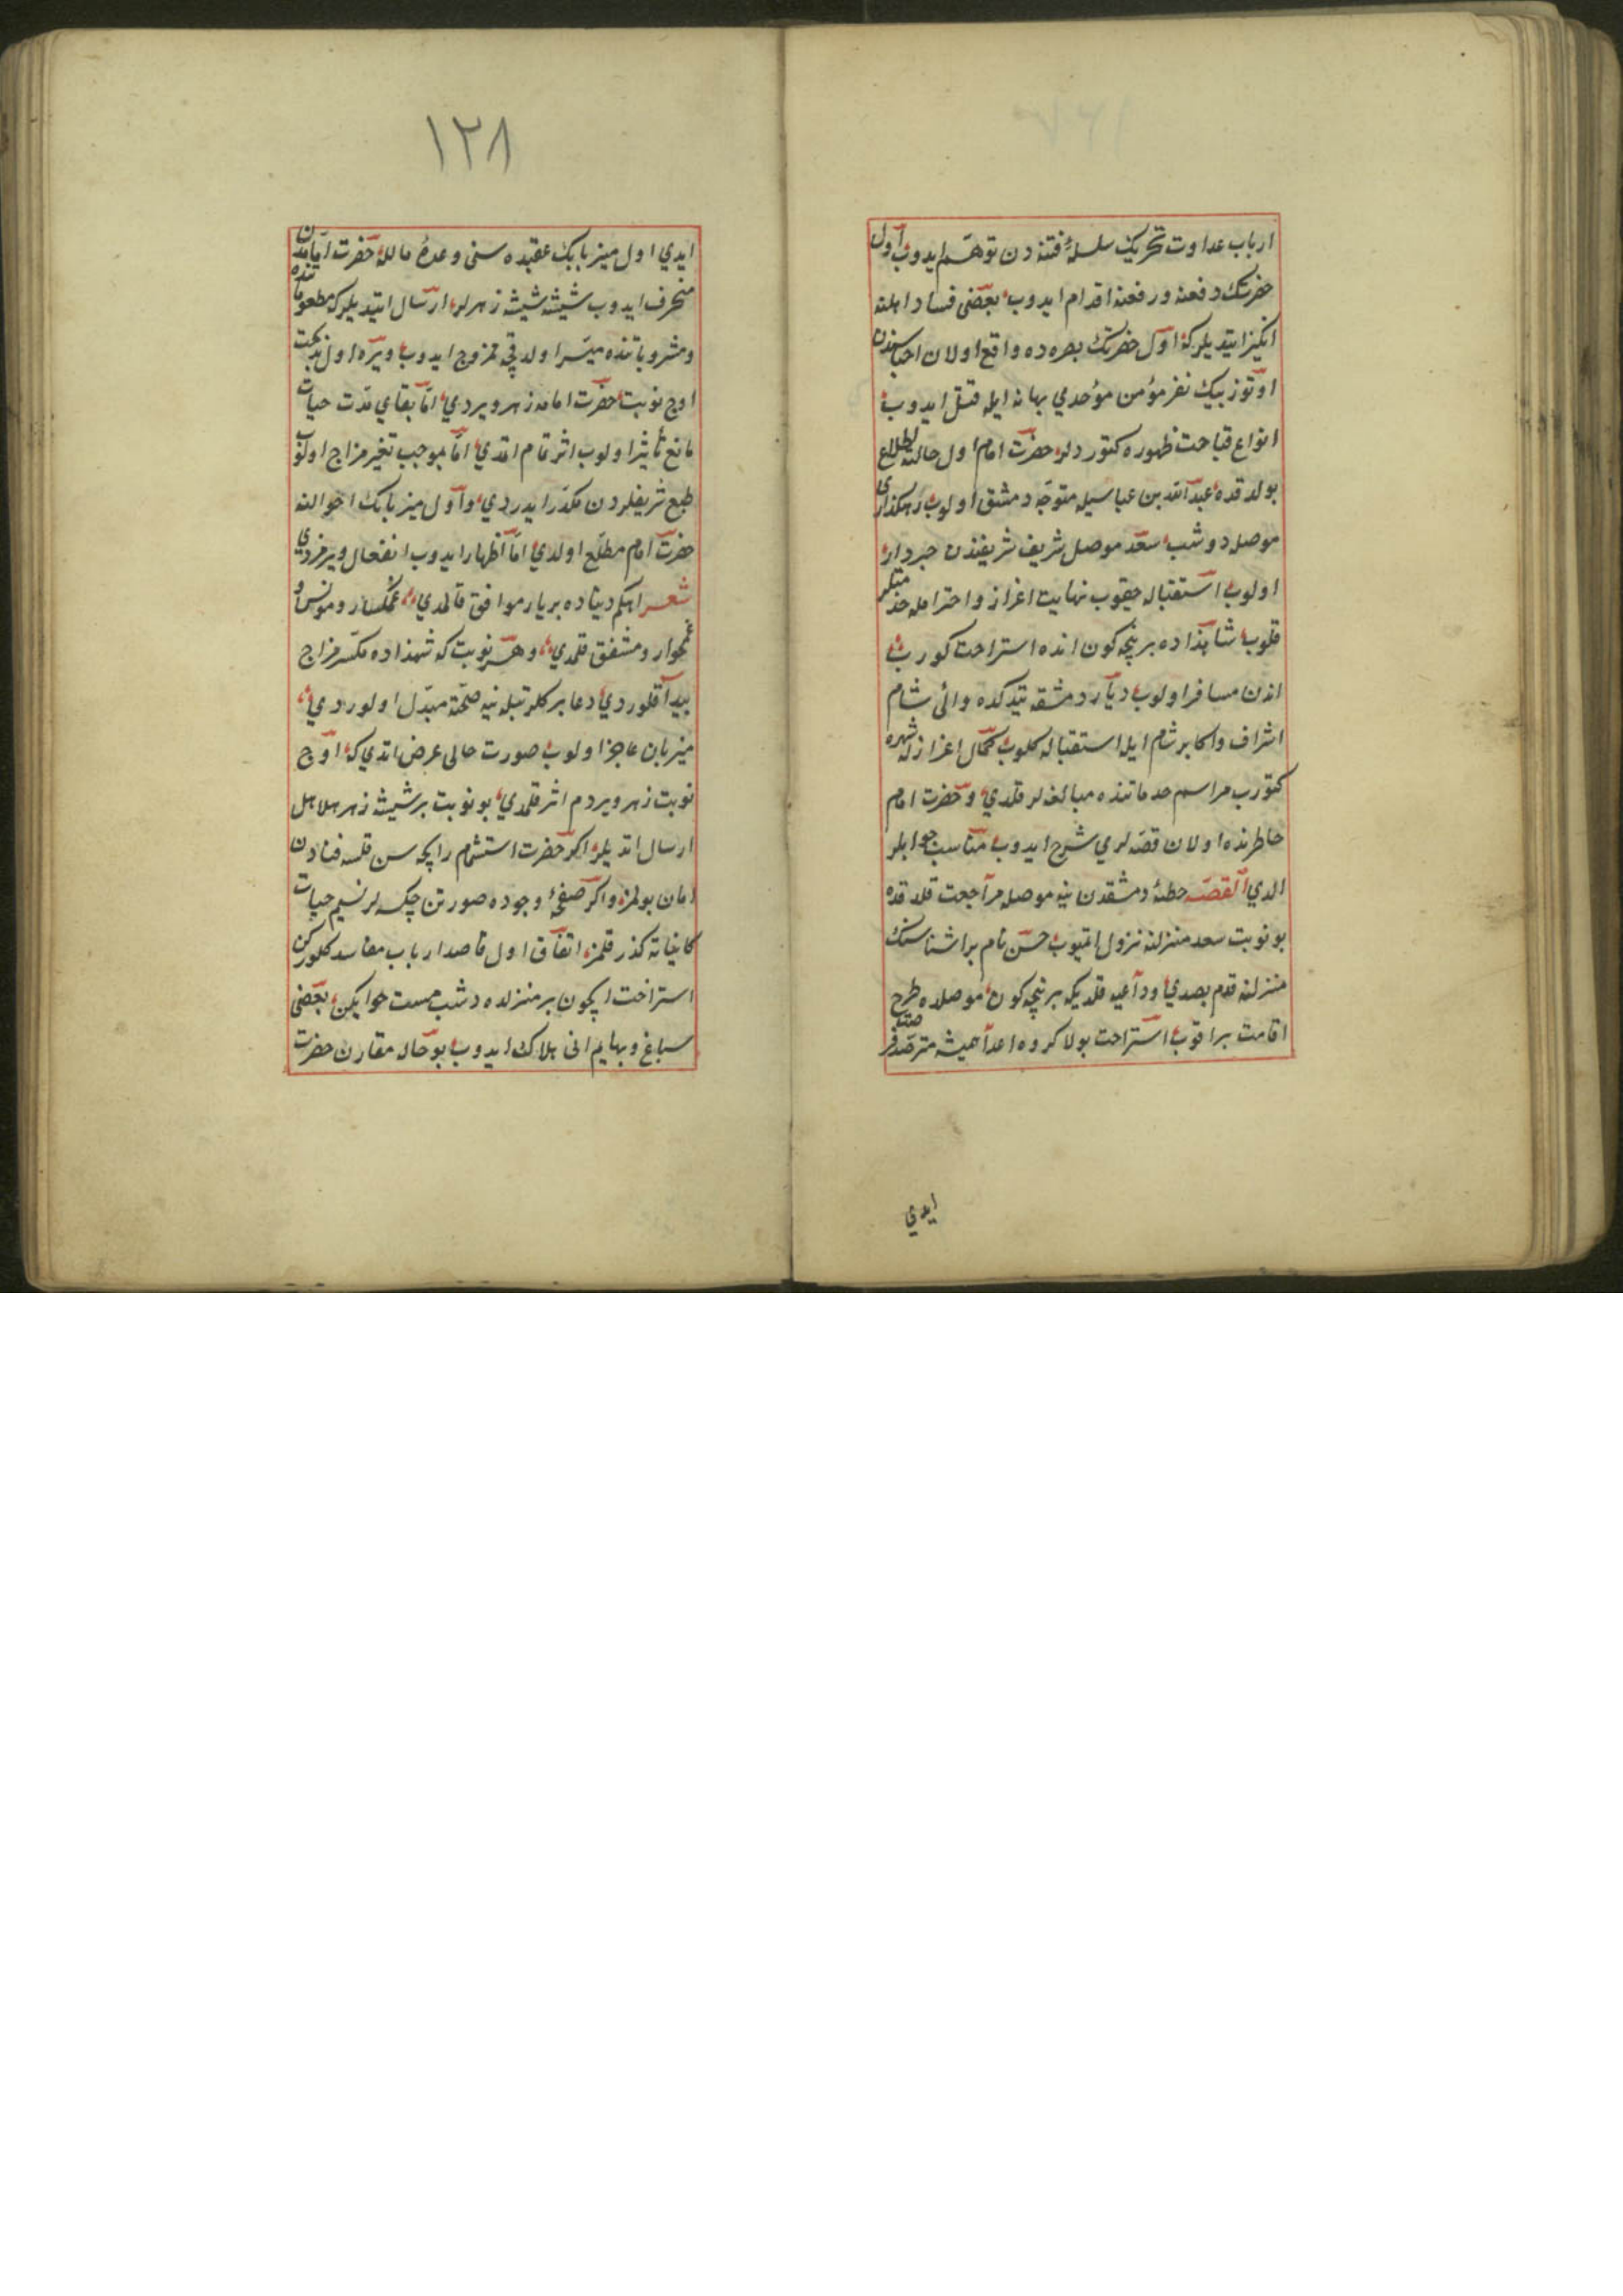 ارباب عداوت تحریک سلسلهٔ فتنه دن توهم ایدوب اول
حضرتك دفعنه و رفعنه اقدام ایدوب بعضی فساد اهلنه
انكیز ایتدیلر كه اول حضرتك بصره ده واقع اولان احباسندن
اوتوز بیك نفر مؤمن موحدی بهانه ایله قتل ایدوب
انواع قباحت ظهوره كتوردلر حضرت امام اول حالته اطلاع
بولدقده عبدالله بن عباسیله متوجه دمشق اولوب رهكذاری
موصله دوشب سعد موصل شریف شریفندن خبردار
اولوب استقباله چیقوب نهایت اعزاز و احترامله
قلوب شاهزاده بر نیچه كون انده استراحت كورب
اندن مسافر اولوب دیار دمشقه یتدكده والئ شام
اشراف و اكابر شام ایله استقباله كلوب كمال اعزازله شهره
كتورب مراسم خدماتنده مبالغه لر قلدی و حضرت امام
خاطرنده اولان قصه لری شرح ایدوب مناسب جوابلر
الدی القصه خطهٔ دمشقدن ینه موصله مراجعت قلدقده
بو نوبت سعد منزلنه نزول ایتمیوب حسن نام بر اشناسنك
منزلنه قدم بصدی و داعیه قلدیكه بر نیچه كون موصلده طرح
اقامت براقوب استراحت بولا كروه اعدا همیشه مترصد فرصت
ایدی
١٢٨
ایدی اول میزبانك عقیده سنی وعدهٔ مالله حضرت امامدن
منحرف ایدوب شیشه شیشه زهرلر ارسال ایتدیلر كه مطعوماتنده
و مشروباتنده میسر اولدقچه ممزوج ایدوب ویره اول بدبخت
اوچ نوبت حضرت امامه زهر ویردی اما بقای مدت حیات
مانع تأثیر اولوب اثر تمام اتمدی اما موجب تغیر مزاج اولوب
طبع شریفلردن مكدر ایدردی و اول میزبانك احوالنه
حضرت امام مطلع اولدی اما اظهار ایدوب انفعال ویرمزدی
شعر ایكم دنیاده بر یار موافق قالمدی غمكسار و مونس و
غمخوار و مشفق قلمدی و هر نوبت كه شهزاده مكسر مزاج
پیدا قلوردی دعا بركلر تبله ینه صحته مبدل اولوردی
میزبان عاجز اولوب صورت حالی عرض اتدی كه اوچ
نوبت زهر ویردم اثر قلمدی بو نوبت بر شیشه زهر هلاهل
ارسال اتدیلر اكر حضرت استشمام رایحه سن قلسه فنادن
امان بولمز و اكر صفحهٔ وجوده صورتن چكسه لر نسیم حیات
كایناته كذر قلمز اتفاق اول قاصد ارباب مفاسد كلوركن
استراحت ایچون بر منزلده دشب مست خوابكن بعضی
سباع و بهایم انی هلاك ایدوب بو حاله مقارن حضرت